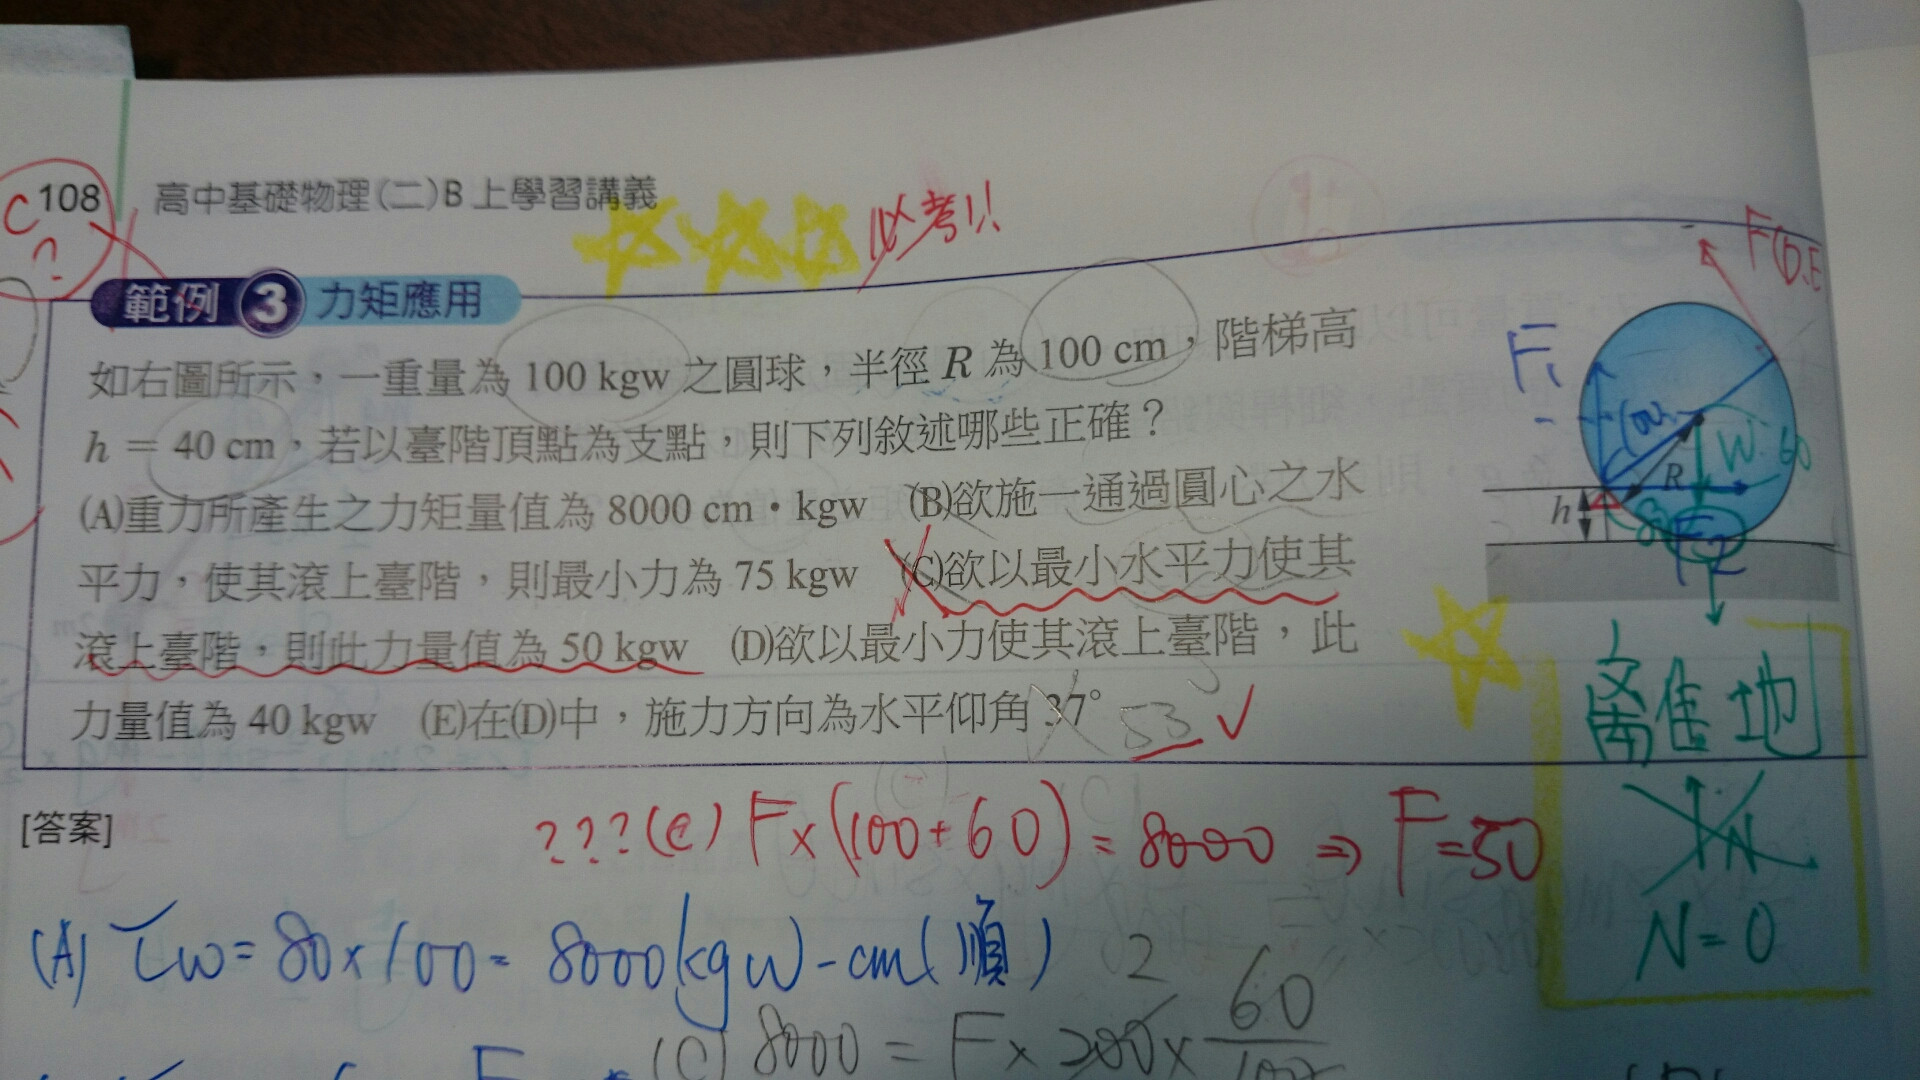 C 108 高中基礎物理(二)B上學習講義
?
必考!!
F(D.E
範例 3 力矩應用
如右圖所示,一重量為 100 kgw 之圓球,半徑 R 為 100 cm,階梯高
h = 40 cm,若以臺階頂點為支點,則下列敘述哪些正確?
(A)重力所產生之力矩量值為 8000 cm·kgw (B)欲施一通過圓心之水
平力,使其滾上臺階,則最小力為 75 kgw (C)欲以最小水平力使其
滾上臺階,則此力量值為 50 kgw (D)欲以最小力使其滾上臺階,此
力量值為 40 kgw (E)在(D)中,施力方向為水平仰角 37° 53
F₁
W 60
R
h
80
F2
離地
N
N=0
[答案]
???(c) F×(100+60)=8000 ⇒ F=50
(A) τw=80×100=8000(kgw)-cm(順)
2
(C) 8000 = F×200×60/100